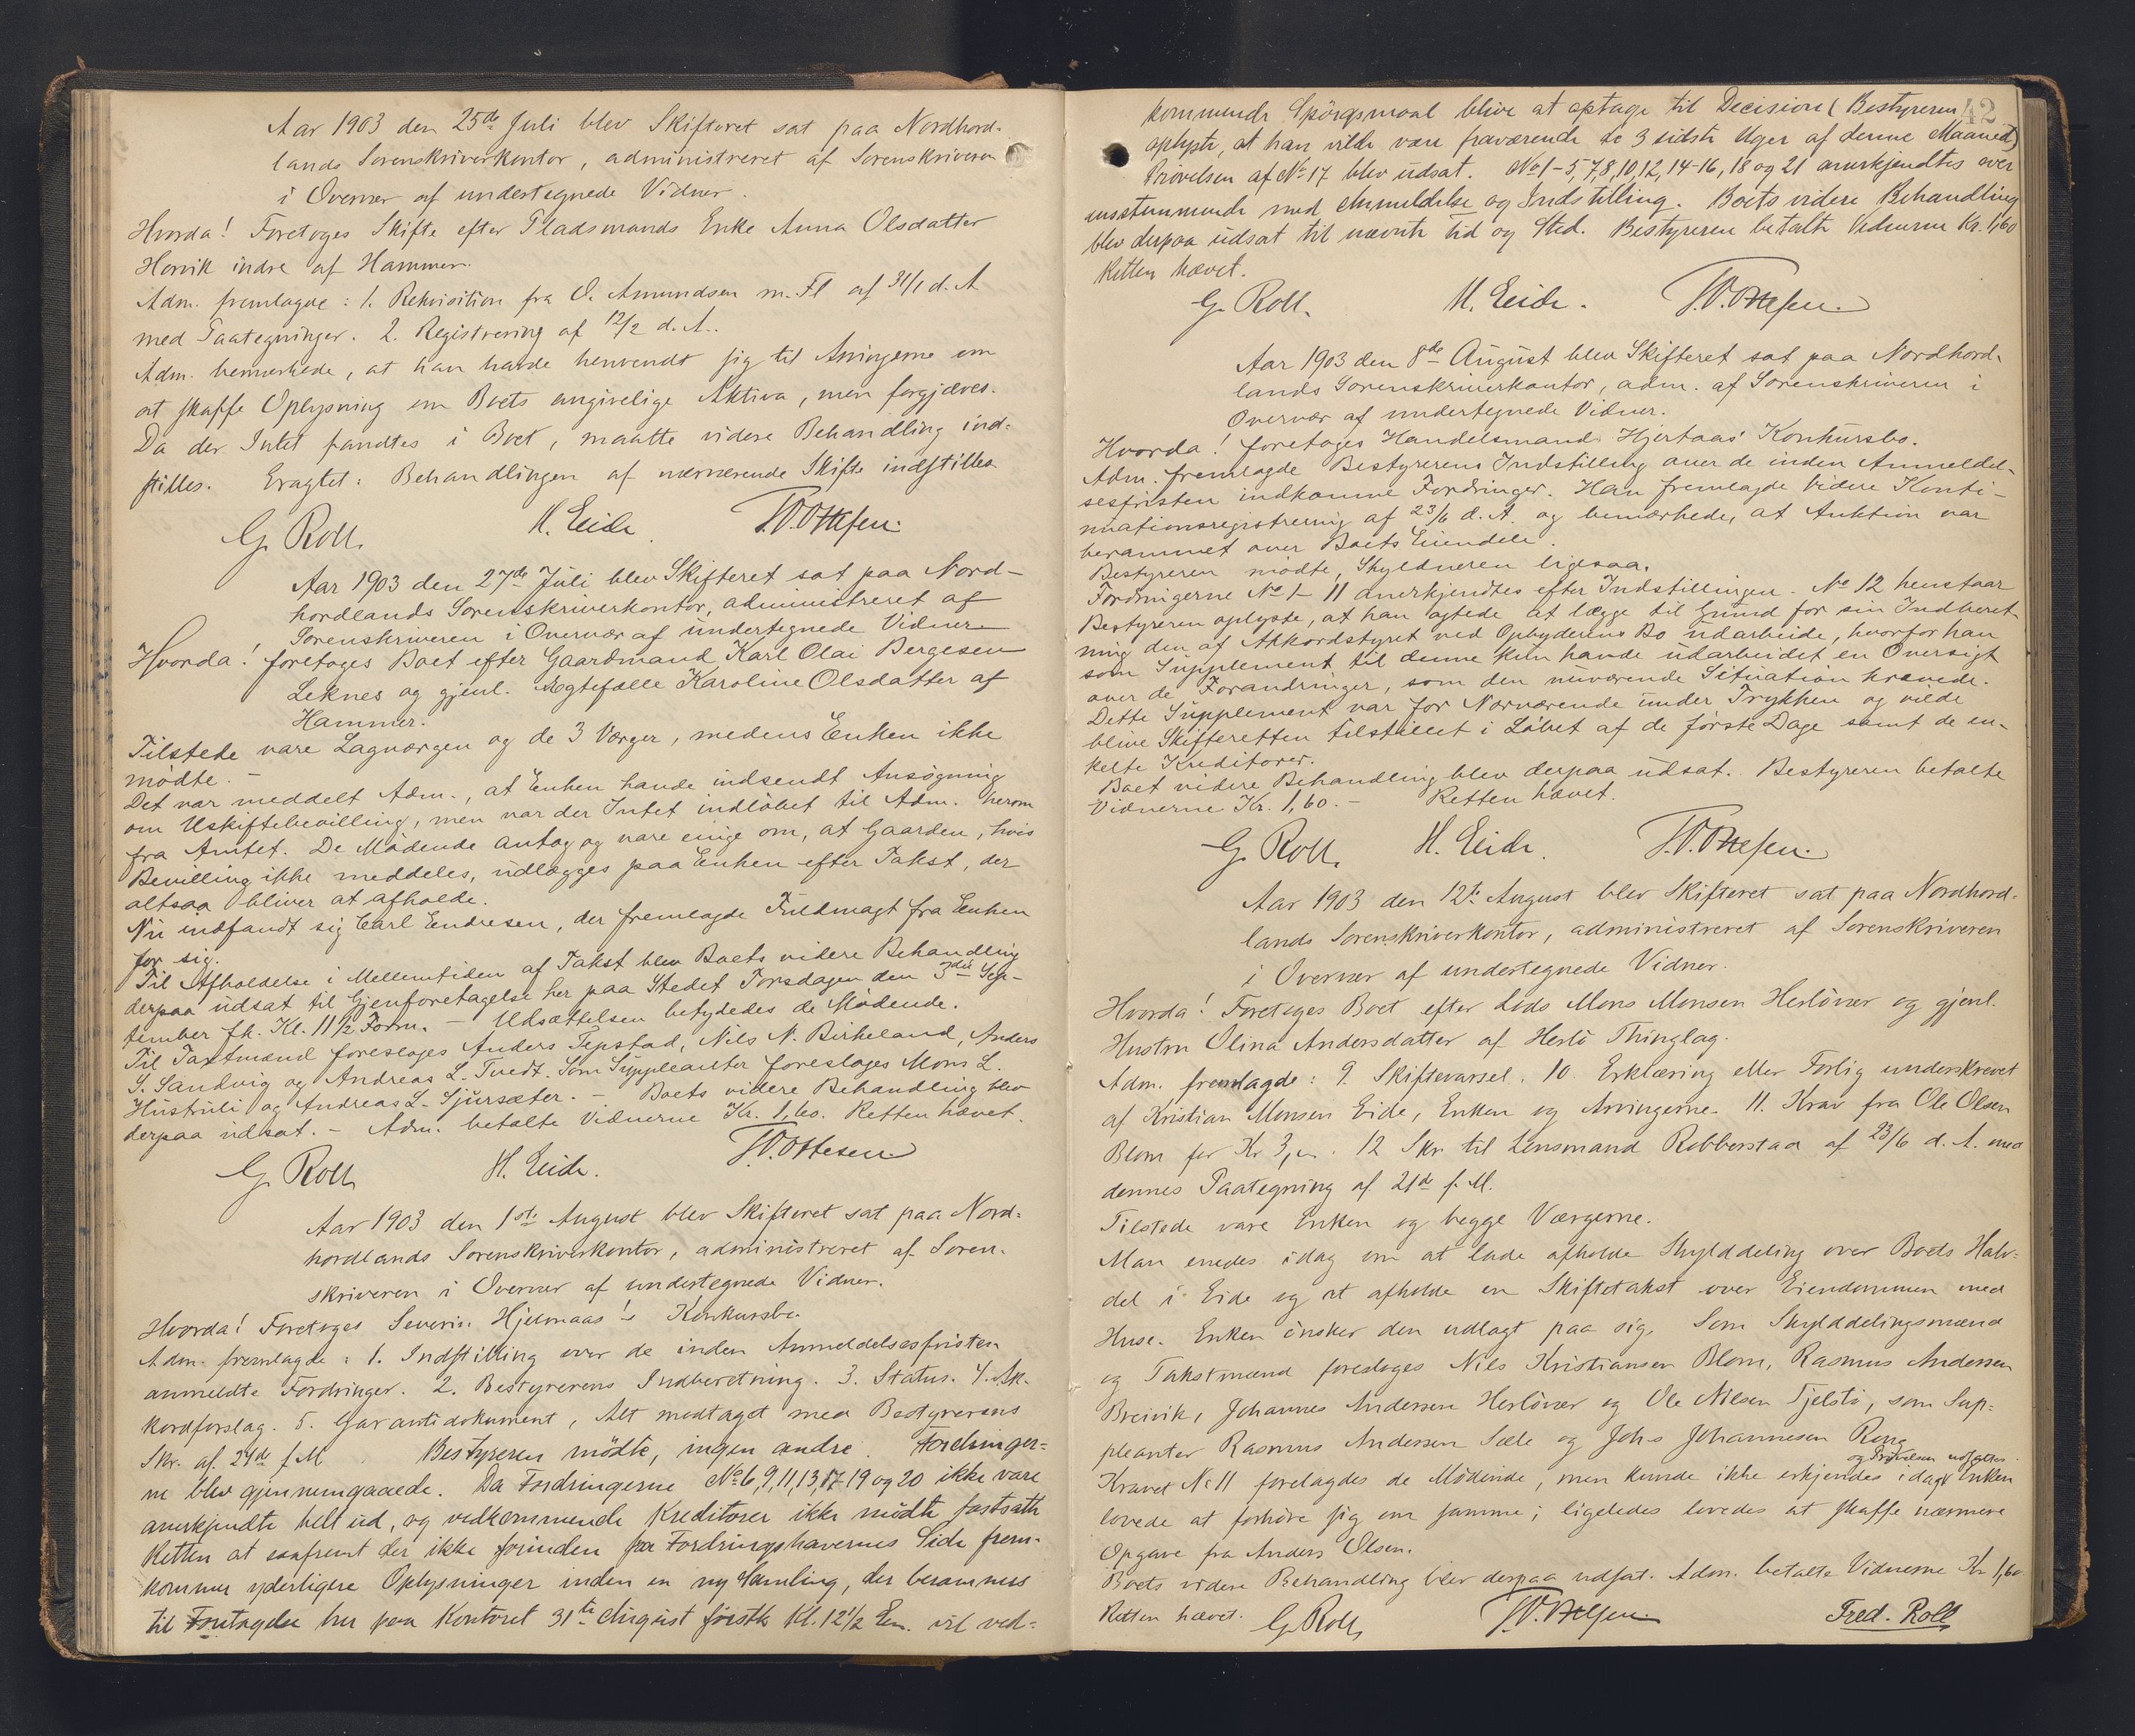 Aar 1903 den 25de Juli blev Skifteret sat paa Nordhord-
lands Sorenskriverkontor, administreret af Sorenskriveren
i Overvær af undertegnede Vidner.
Hvorda! Foretoges Skifte efter Pladsmands Enke Anna Olsdatter
Horvik indre af Hammer.
Adm. fremlagde: 1. Rekvisition fra O. Amundsen m. Fl af 31/1 d. A
med Paategninger. 2. Registrering af 12/2 d. A..
Adm. bemærkede, at han havde henvendt sig til Arvingerne om
at skaffe Oplysning om Boets angivelige Aktiva, men forgjæves.
Da der Intet fandtes i Boet, maatte videre Behandling ind-
stilles. Eragtet: Behandlingen af nærværende Skifte indstilles.
G. Roll. H. Eide. T. Ottesen.
Aar 1903 den 27de Juli blev Skifteret sat paa Nord-
hordlands Sorenskriverkontor, administreret af
Sorenskriveren i Overvær af undertegnede Vidner
Hvorda! foretoges Boet efter Gaardmand Karl Olai Bergesen
Leknes og gjenl. Ægtefælle Karoline Olsdatter af
Hammer.
Tilstede vare Lagværgen og de 3 Værger, medens Enken ikke
mødte. -
Det var meddelt Adm., at Enken havde indsendt Ansøgning
om Uskiftebevilling, men var der Intet indløbet til Adm. herom
fra Amtet. De Mødende antog og vare enige om, at Gaarden, hvis
Bevilling ikke meddeles, udlægges paa Enken efter Takst, der
altsaa bliver at afholde.
Nu indfandt sig Carl Endresen, der fremlagde Fuldmagt fra Enken
for sig.
Til Afholdelse i Mellemtiden af Takst blev Boets videre Behandling
derpaa udsat til Gjenforetagelse her paa Stedet Torsdagen den 3die Sep-
tember fk. Kl. 11 1/2 Form. - Udsættelsen betydedes de Mødende.
Til Taxtmænd foresloges Anders Tepstad, Nils N. Birkeland, Anders
S. Sandvig og Andreas L. Tvedt. Som Suppleanter foresloges Mons L.
Hustruli og Andreas L. Sjursæter. - Boets videre Behandling blev
derpaa udsat. - Adm. betalte Vidnerne Kr. 1,60. Retten hævet.
G. Roll H. Eide. T. Ottesen
Aar 1903 den 1ste August blev Skifteret sat paa Nord-
hordlands Sorenskriverkontor, administreret af Soren-
skriveren i Overvær af undertegnede Vidner.
Hvorda! Foretoges Severin Hjelmaas's Konkursbo.
Adm. fremlagde: 1. Indstilling over de inden Anmeldelsesfristen
anmeldte Fordringer. 2. Bestyrerens Indberetning. 3. Status. 4. Ak-
kordforslag. 5. Garantidokument, Alt modtaget med Bestyrerens
Skr. af 29de f M Bestyreren mødte, ingen andre. Fordringer-
ne blev gjennemgaaede. Da Fordringerne No 6, 9, 11, 13, 17, 19 og 20 ikke vare
anerkjendte helt ud, og vedkommende Kreditorer ikke mødte fastsatte
Retten at saafremt der ikke forinden fra Fordringshavernes Side frem-
kommer yderligere Oplysninger inden en ny Samling, der berammes
til Foretagelse her paa Kontoret 31te August førstk. Kl. 12 1/2 Em. vil ved-
42
kommende Spørgsmaal blive at optage til Decision (Bestyreren
oplyste, at han vilde være fraværende de 3 sidste Uger af denne Maaned)
Prøvelsen af No 17 blev udsat. No 1-5, 7, 8, 10, 12, 14-16, 18 og 21 anerkjendtes over
ensstemmende med Anmeldelse og Indstilling. Boets videre Behandling
blev derpaa udsat til nævnte Tid og Sted. Bestyreren betalte Vidnerne Kr. 1,60
Retten hævet.
G. Roll. H. Eide. T. Ottesen.
Aar 1903 den 8de August blev Skifteret sat paa Nordhord-
lands Sorenskriverkontor, adm. af Sorenskriveren i
Overvær af undertegnede Vidner.
Hvorda! foretoges Handelsmand Hjertaas' Konkursbo.
Adm. fremlagde Bestyrerens Indstilling over de inden Anmeldel-
sesfristen indkomne Fordringer. Han fremlagde videre Konti-
nuationsregistrering af 23/6 d. A. og bemærkede, at Auktion var
berammet over Boets Eiendele.
Bestyreren mødte, Skyldneren ligesaa.
Fordringerne No 1-11 anerkjendtes efter Indstillingen. No 12 henstaar
Bestyreren oplyste, at han agtede at lægge til Grund for sin Indberet-
ning den af Akkordstyret ved Opbyderens Bo udarbeide, hvorfor han
som Supplement til denne kun havde udarbeidet en Oversigt
over de Forandringer, som den nuværende Situation krævede.
Dette Supplement var for Nærværende under Trykken og vilde
blive Skifteretten tilstillet i Løbet af de første Dage samt de en-
kelte Kreditorer.
Boet videre Behandling blev derpaa udsat. Bestyreren betalte
Vidnerne Kr. 1,60. - Retten hævet.
G. Roll. H. Eide. T. Ottesen.
Aar 1903 den 12te August blev Skifteret sat paa Nordhord-
lands Sorenskriverkontor, administreret af Sorenskriveren
i Overvær af undertegnede Vidner.
Hvorda! Foretoges Boet efter Lods Mons Monsen Herløvær og gjenl.
Hustru Olina Andersdatter af Herlø Thinglag.
Adm. fremlagde: 9. Skiftevarsel. 10. Erklæring eller Forlig underskrevet
af Kristian Monsen Eide, Enken og Arvingerne. 11. Krav fra Ole Olsen
Blom for Kr 3, 12 Skr. til Lensmand Robberstad af 23/6 d. A. med
dennes Paategning af 21de f. M.
Tilstede vare Enken og begge Værgerne.
Man enedes idag om at lade afholde Skylddeling over Boets Halv-
del i Eide og at afholde en Skiftetakst over Eiendommen med
Huse. Enken ønsker den udlagt paa sig. Som Skylddelingsmænd
og Takstmænd foresloges Nils Kristiansen Blom, Rasmus Andersen
Breivik, Johannes Andersen Herløvær og Ole Nilsen Tjelstø, som Sup-
pleanter Rasmus Andersen Sæle og Johs Johannesen Rong
og Prøvelsen udsættes.
Kravet No 11 forelagdes de Mødende, men kunde ikke erkjendes idag Enken
lovede at forhøre sig om samme; ligeledes lovedes at skaffe nærmere
Opgave fra Anders Olsen.
Boets videre Behandling blev derpaa udsat. Adm. betalte Vidnerne Kr 1,60
Retten hævet. G. Roll, T. Ottesen. Fred. Roll